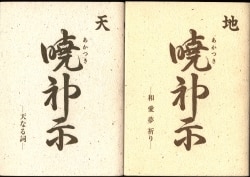 天
あかつき
曉神示
―天なる詞―
地
あかつき
曉神示
―相愛夢祈り―